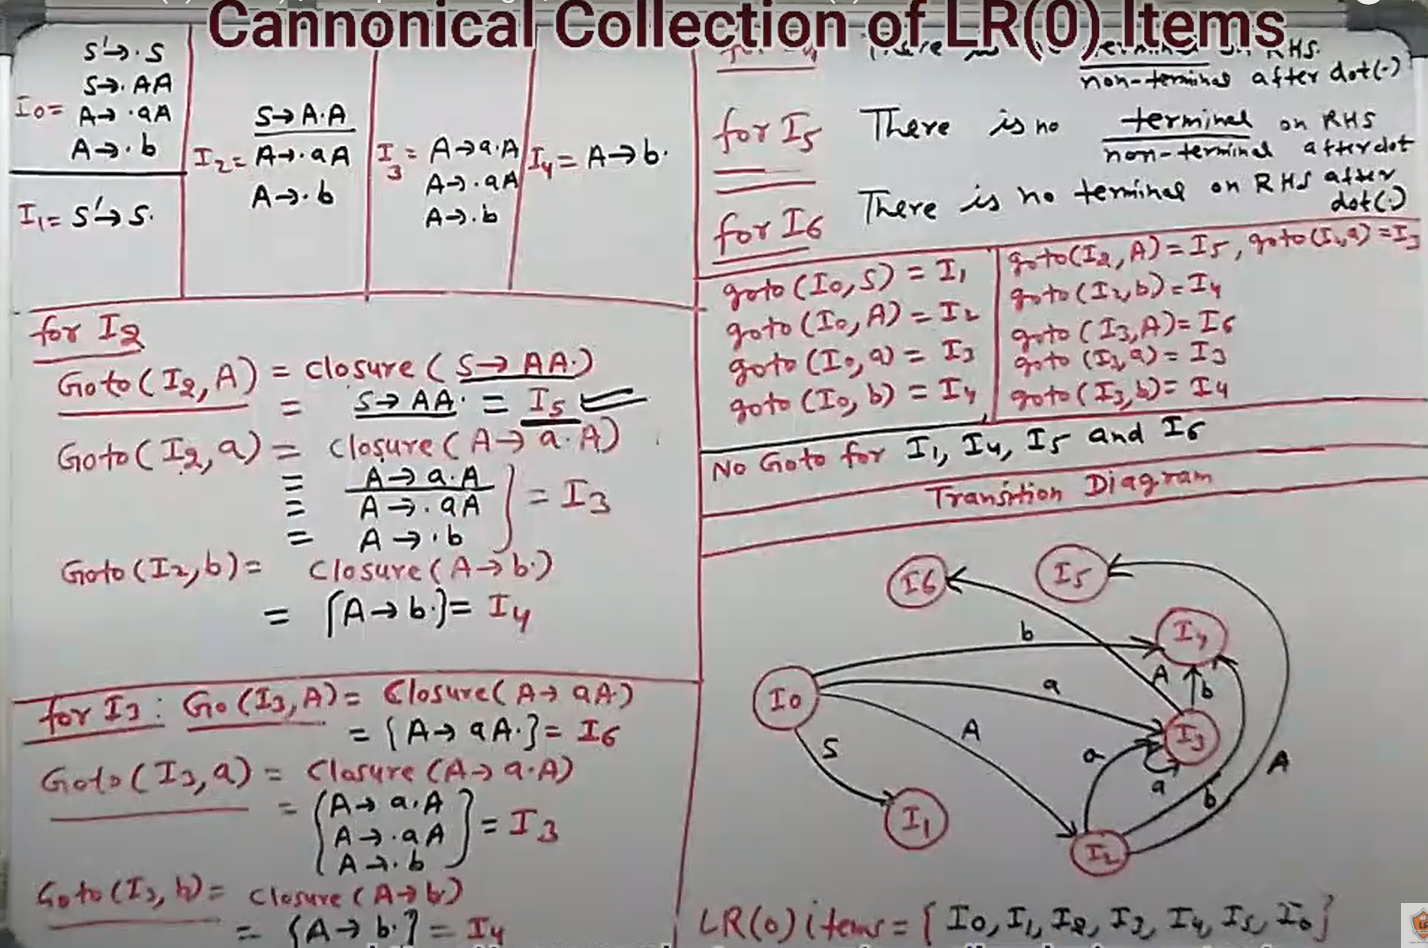 Cannonical Collection of LR(0) Items
I0=
S'→.S
S→.AA
A→.aA
A→.b
I1= S'→S.
I2=
S→A.A
A→.aA
A→.b
I3 =
A→a.A
A→.aA
A→.b
I4= A→b.
for I2
Goto(I2, A) = closure (S→AA.)
= S→AA. = I5
Goto(I2, a) = closure(A→a.A)
= A→a.A
= A→.aA
= A→.b
= I3
Goto(I2, b) = closure(A→b.)
= {A→b.}= I4
for I3: Go(I3, A)= Closure(A→aA.)
= {A→aA.}= I6
Goto(I3, a) = Closure (A→a.A)
= {A→a.A
A→.aA
A→.b} = I3
Goto(I3, b)= closure(A→b.)
= {A→b.}= I4
RHS
non-terminal after dot(.)
for I5 There is no terminal on RHS
non-terminal after dot
for I6 There is no terminal on RHS after
dot(.)
goto(I0, S) = I1
goto(I0, A) = I2
goto(I0, a) = I3
goto(I0, b) = I4
goto(I2, A)= I5, goto(I2, a) = I3
goto(I2, b)= I4
goto(I3, A)= I6
goto(I3, a)= I3
goto(I3, b)= I4
No Goto for I1, I4, I5 and I6
Transition Diagram
I6
I5
b
I4
I0
a
A
b
I3
S
A
a
a
b
A
I1
I2
LR(0) items = { I0, I1, I2, I3, I4, I5, I6 }